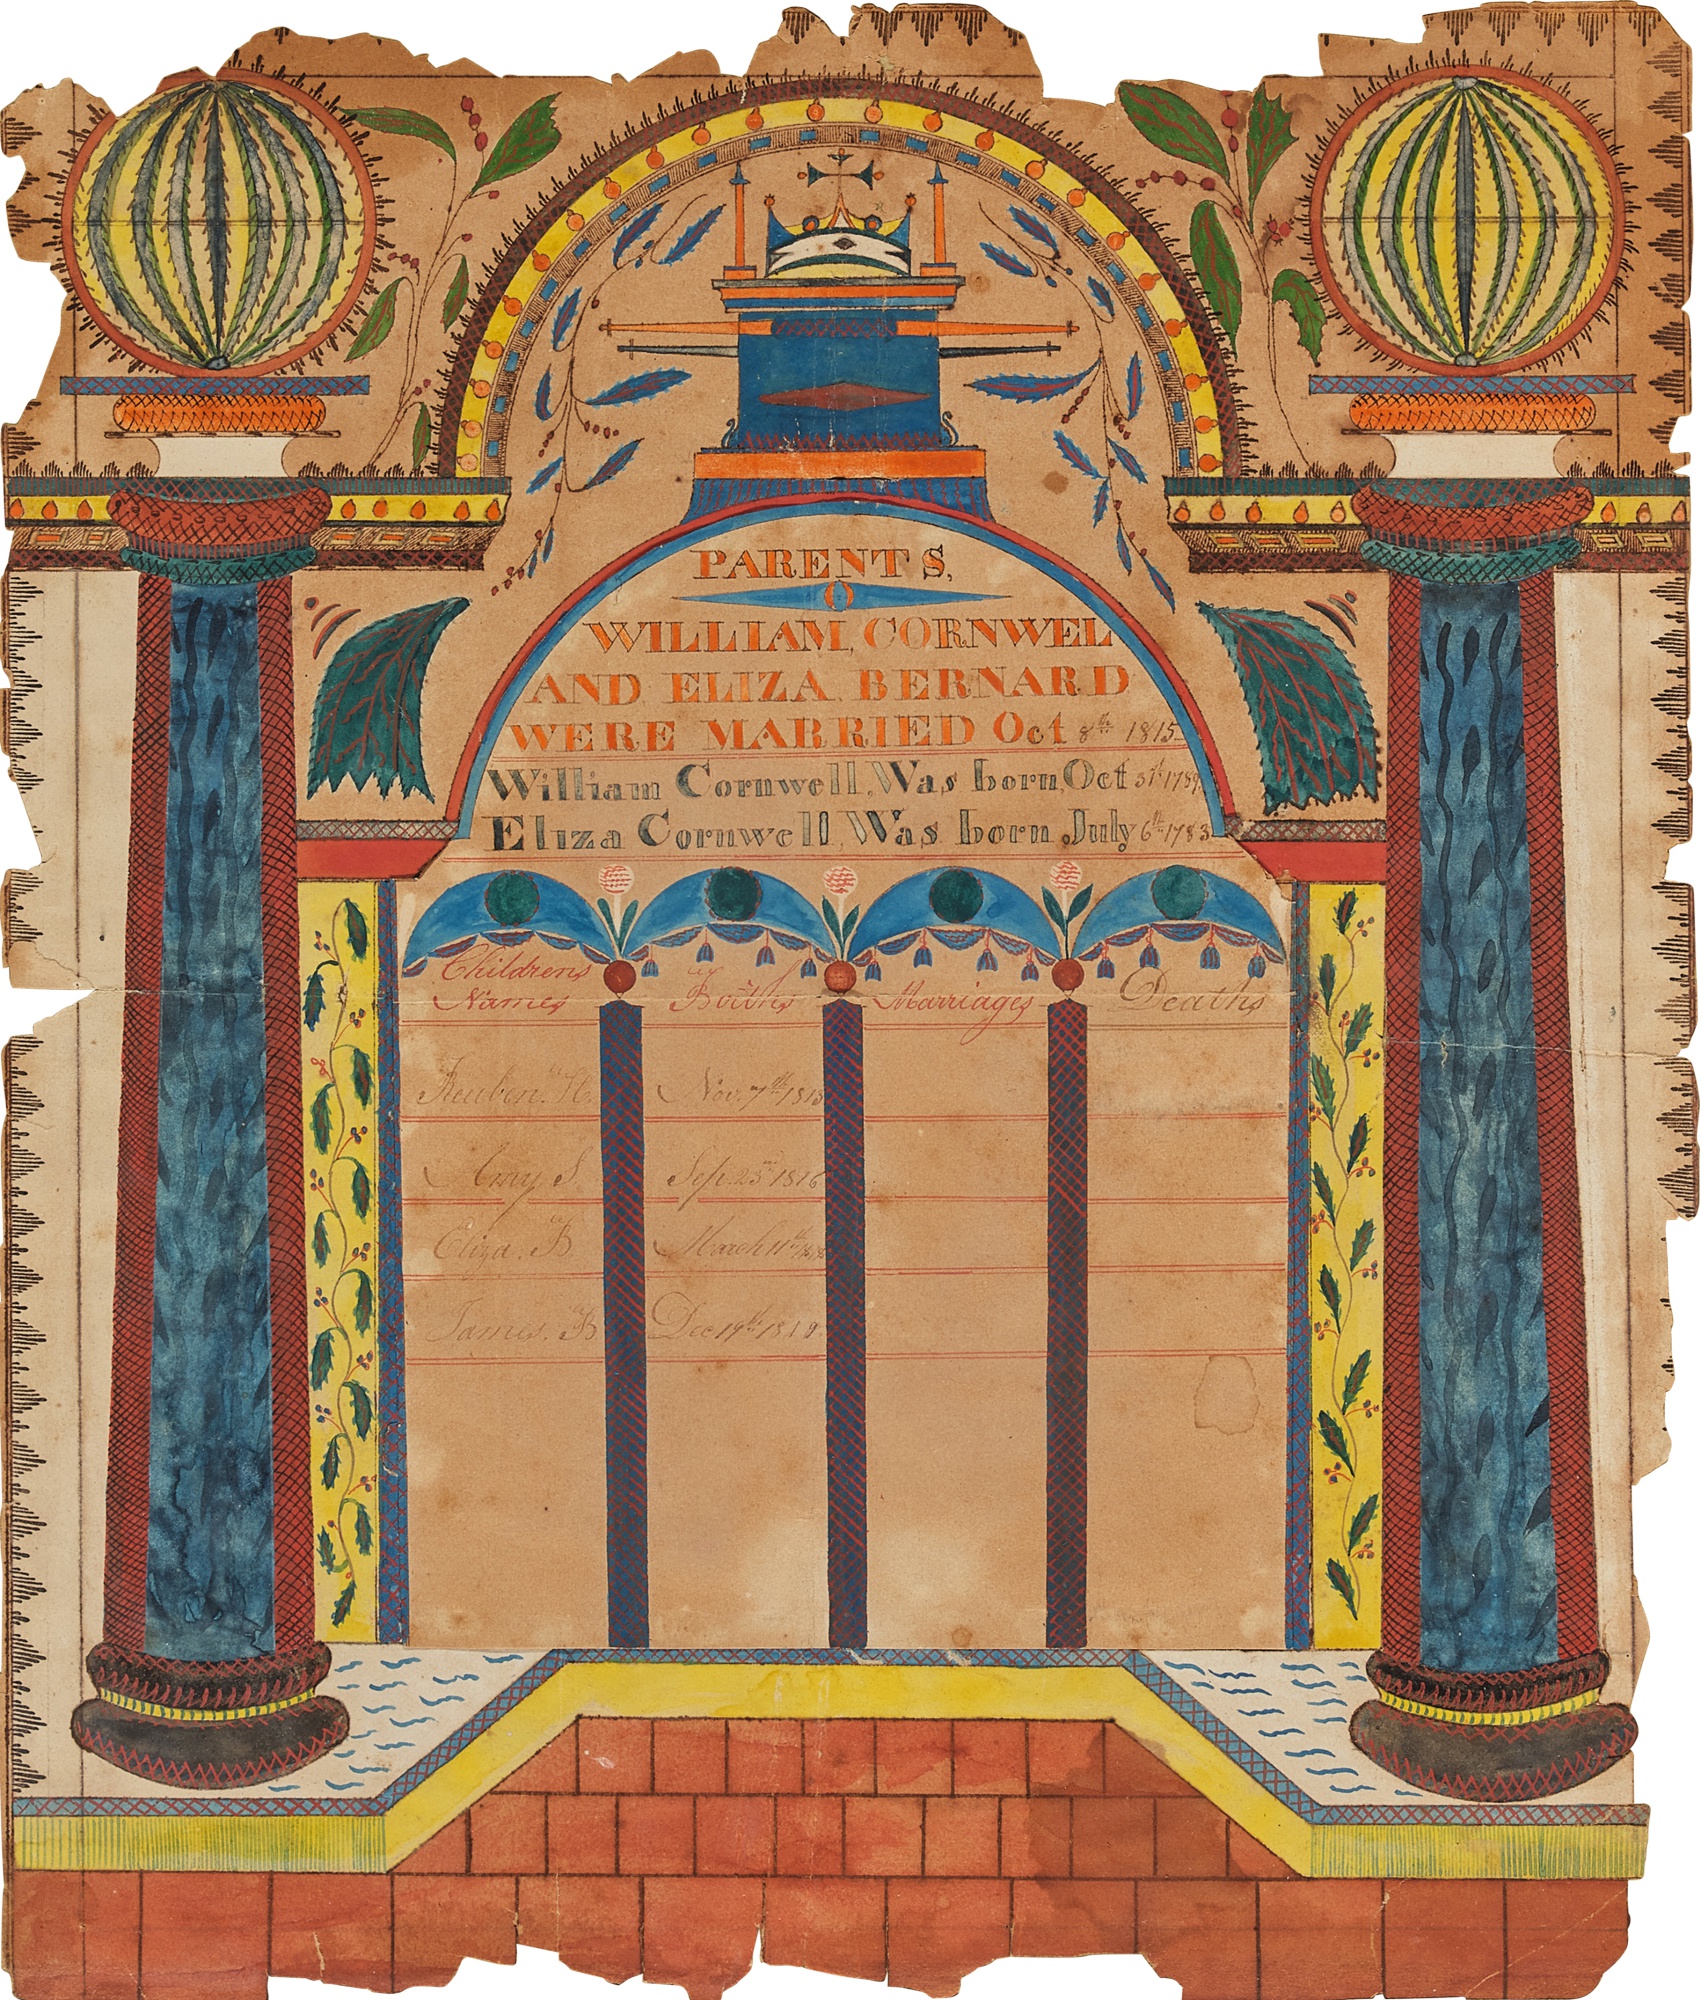 PARENTS,
WILLIAM, CORNWEL
AND ELIZA BERNARD
WERE MARRIED Oct 8th 1815
William Cornwell, Was born, Oct 31st 1789
Eliza Cornwell, Was born July 6th 1783
Childrens Names
Births
Marriages
Deaths
Reuben. H. Nov. 7th
Amy S. Sep. 23rd 1816
Eliza. B. March 11th
James. B Dec 19th 1819